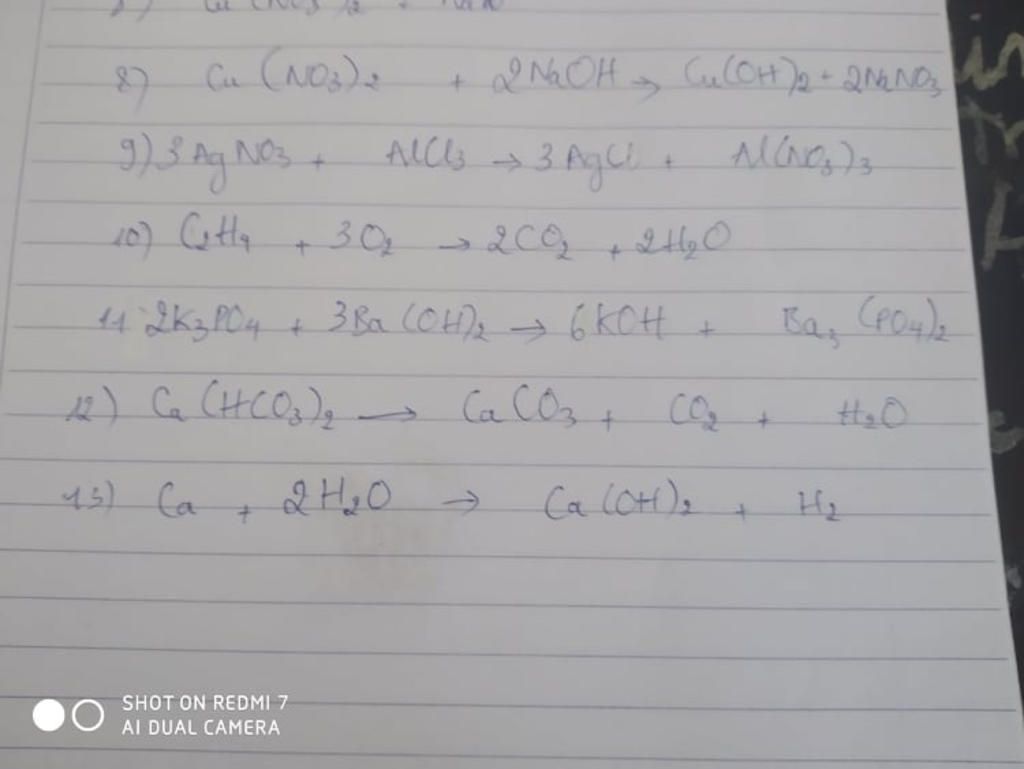 8) Cu (NO3)2 + 2NaOH → Cu(OH)2 + 2NaNO3
9) 3AgNO3 + AlCl3 → 3AgCl + Al(NO3)3
10) C2H4 + 3O2 → 2CO2 + 2H2O
11 2K3PO4 + 3Ba (OH)2 → 6KOH + Ba3 (PO4)2
12) Ca (HCO3)2 → CaCO3 + CO2 + H2O
13) Ca + 2H2O → Ca (OH)2 + H2
SHOT ON REDMI 7
AI DUAL CAMERA